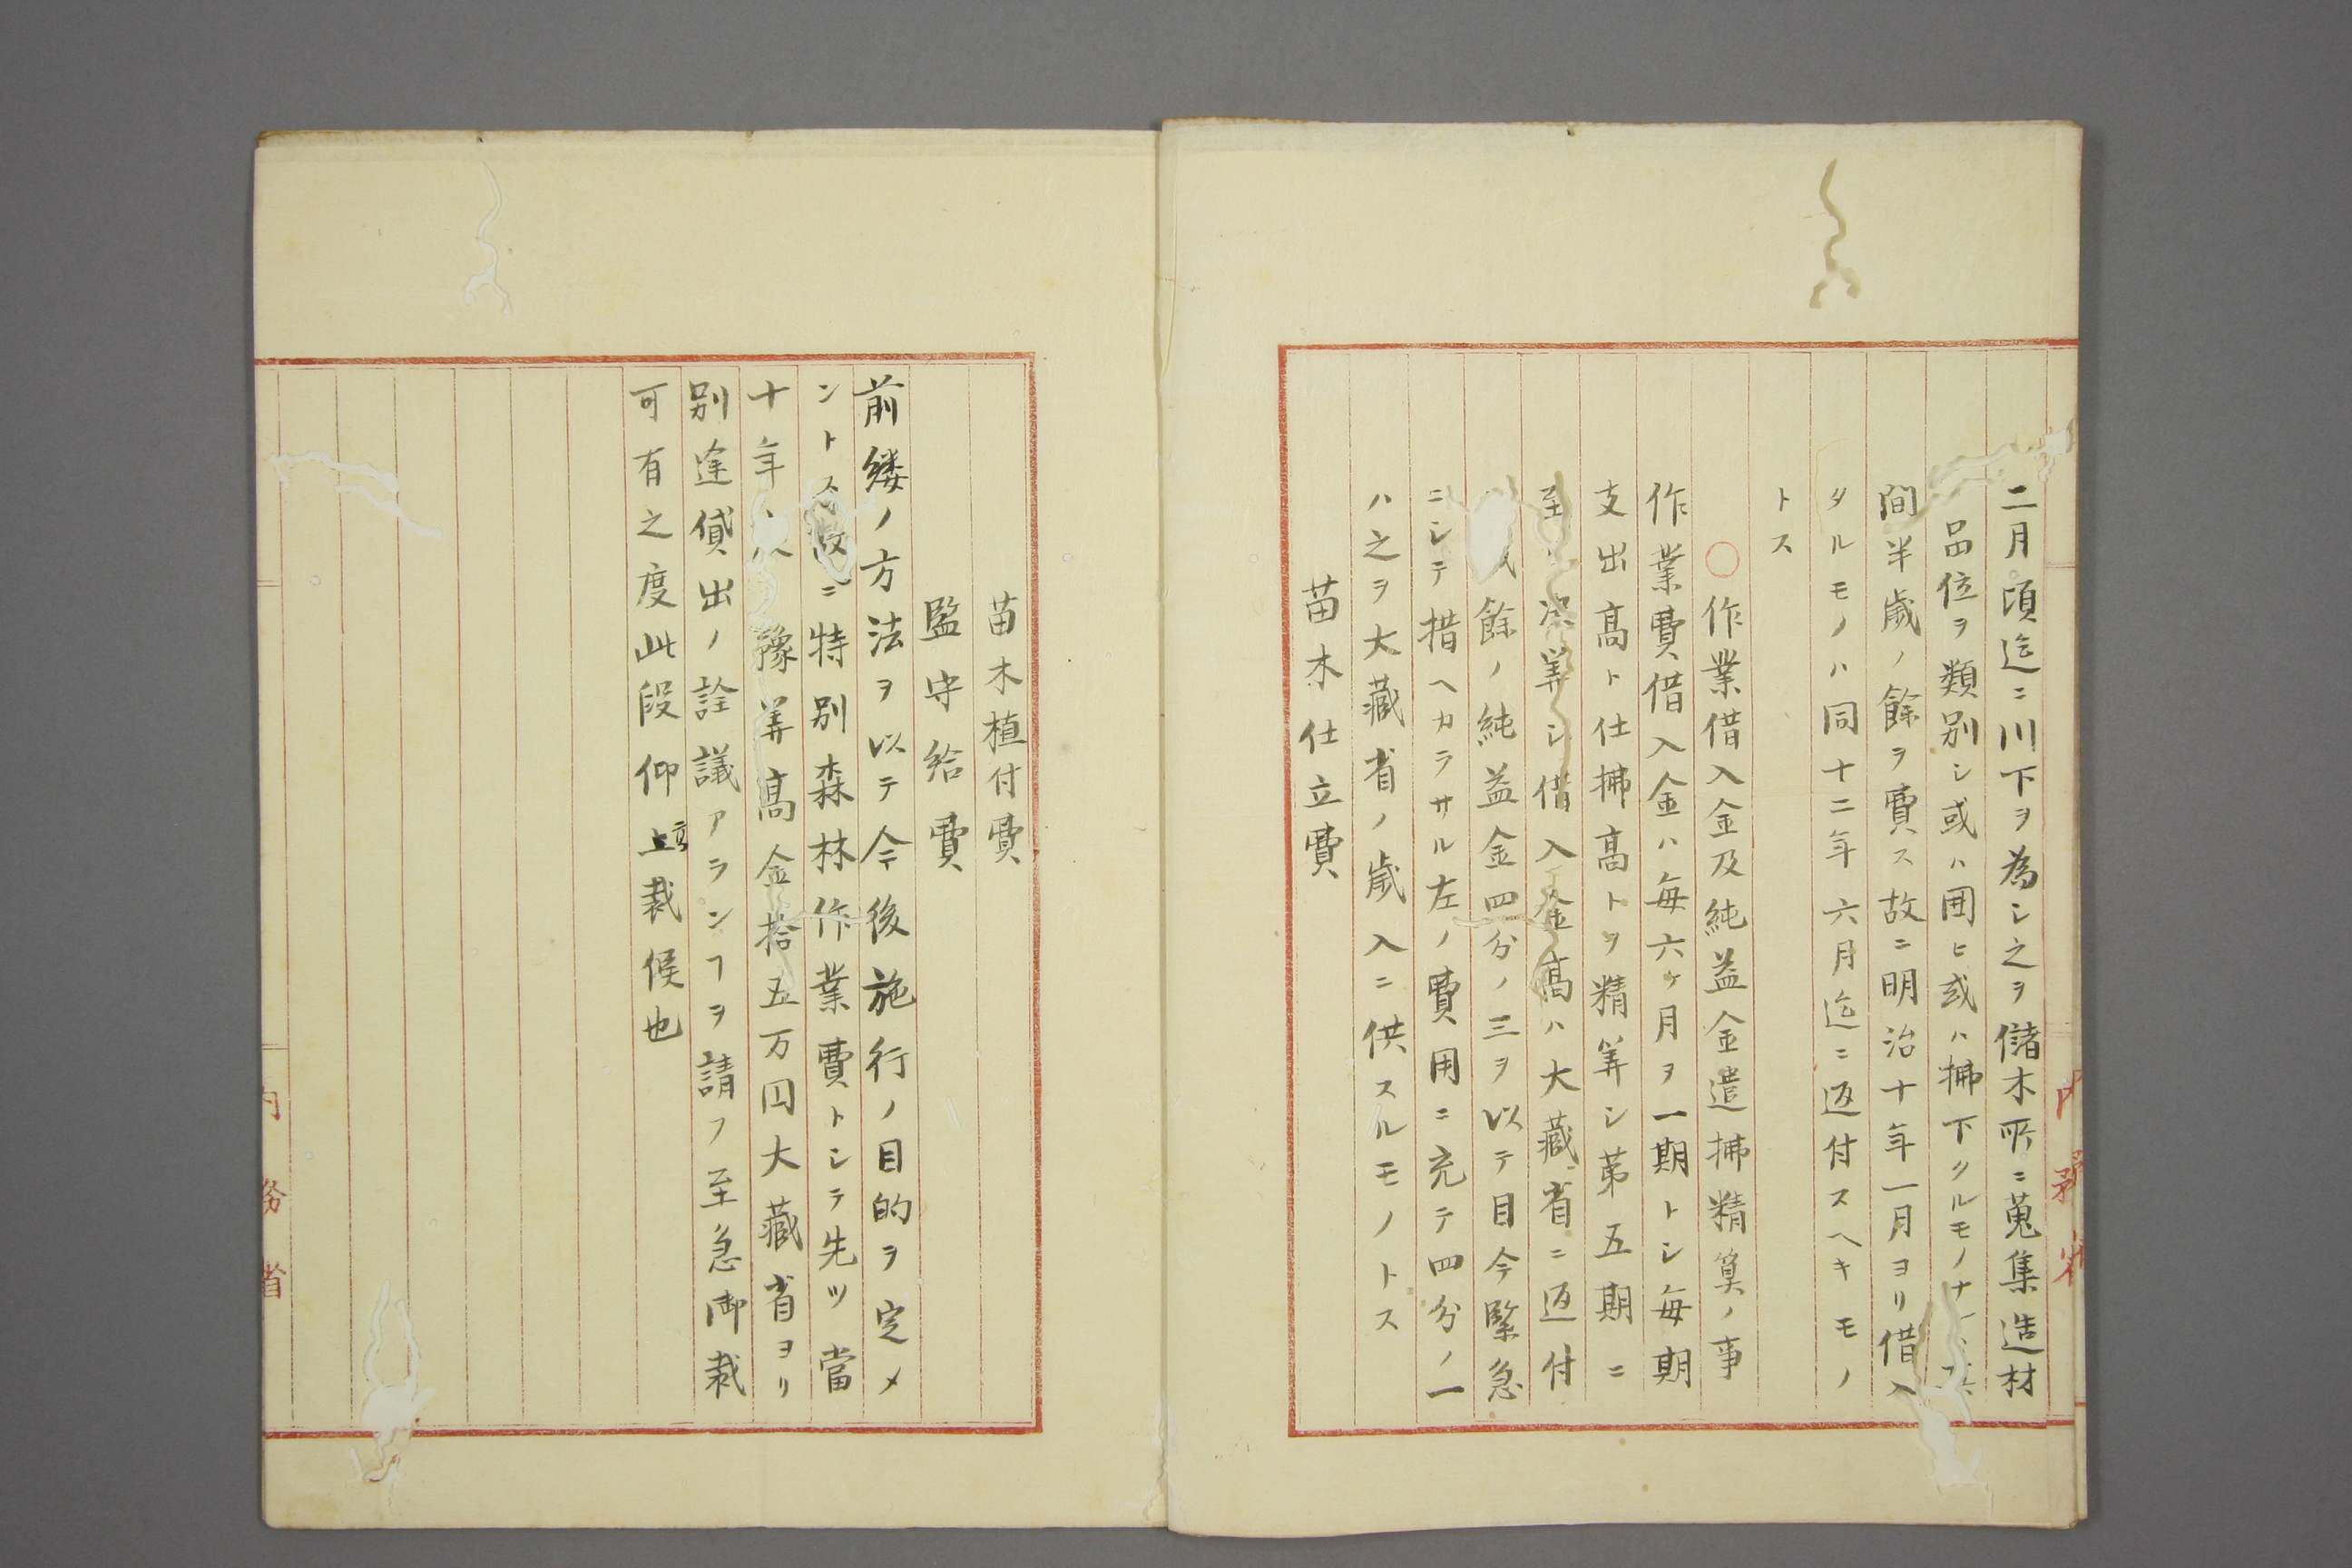 二月頃迄ニ川下ヲ為シ之ヲ儲木所ニ蒐集造材
品位ヲ類別シ或ハ囲ヒ或ハ拂下クルモノナ
間半歳ノ餘ヲ費ス故ニ明治十年一月ヨリ借入
タルモノハ同十二年六月迄ニ返付スヘキモノ
トス
○作業借入金及純益金遣拂精算ノ事
作業費借入金ハ毎六ケ月ヲ一期トシ毎期
支出高ト仕拂高トヲ精筭シ第五期ニ
至 决筭シ借入金高ハ大藏省ニ返付
餘ノ純益金四分ノ三ヲ以テ目今緊急
ニシテ措ヘカラサル左ノ費用ニ充テ四分ノ一
ハ之ヲ大藏省ノ歳入ニ供スルモノトス
苗木仕立費
内務省
苗木植付費
監守給費
前縷ノ方法ヲ以テ今後施行ノ目的ヲ定メ
ントス故ニ特別森林作業費トシテ先ツ當
十年 豫筭高金拾五万円大藏省ヨリ
別途貸出ノ詮議アランヿヲ請フ至急御裁
可有之度此段仰上裁候也
内務省